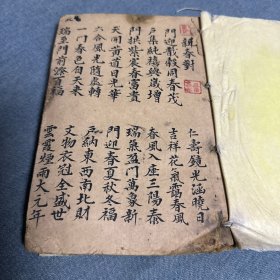 新春對
門迎戩穀同春茂
戶集純禧與歲增
門拱紫宸春富貴
天開黃道日光華
六合風光隨歲轉
一門春色自天來
瑞至門前
仁壽鏡光涵曉日
吉祥花氣靄春風
春風入座三陽泰
瑞氣盈門萬象新
門迎春夏秋冬福
戶納東西南北財
文物衣冠全盛世
雲霞煙雨大元年